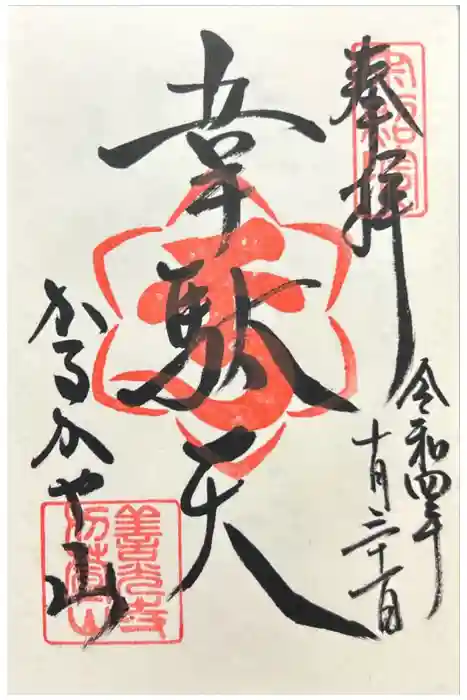 奉拝
令和四年
十月三十一日
韋駄天
かるかや山
善光寺
刈萱山